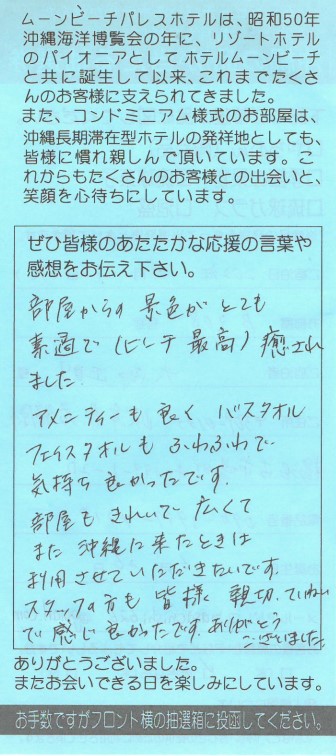 ムーンビーチパレスホテルは、昭和50年
沖縄海洋博覧会の年に、リゾートホテル
のパイオニアとしてホテルムーンビーチ
と共に誕生して以来、これまでたくさ
んのお客様に支えられてきました。
また、コンドミニアム様式のお部屋は、
沖縄長期滞在型ホテルの発祥地としても、
皆様に慣れ親しんで頂いています。こ
れからもたくさんのお客様との出会いと、
笑顔を心待ちにしています。
ぜひ皆様のあたたかな応援の言葉や
感想をお伝え下さい。
部屋からの景色がとても
素適で(ビーチ最高)癒され
ました
アメニティーも良く バスタオル
フェイスタオルも ふわふわで
気持ち良かったです.
部屋もきれいで広くて
また沖縄に来たときは
利用させていただきたいです.
スタッフの方も皆様 親切、ていねい
で感じ良かったです. ありがとう
ございました.
ありがとうございました。
またお会いできる日を楽しみにしています。
お手数ですがフロント横の抽選箱に投函してください。